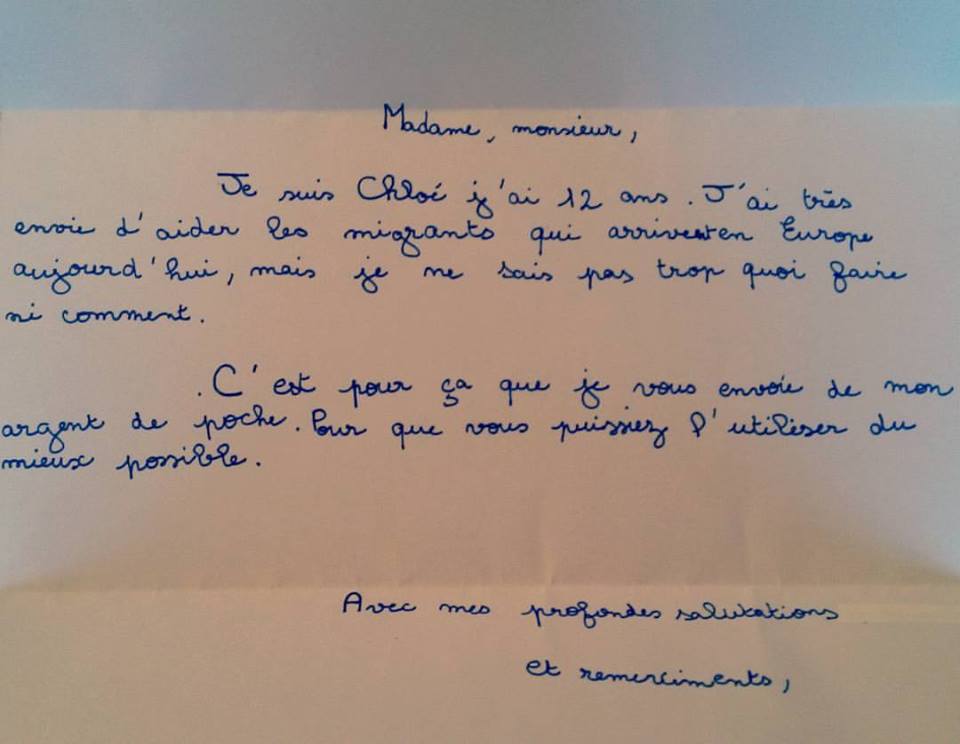 Madame, monsieur,
Je suis Chloé j'ai 12 ans. J'ai très
envie d'aider les migrants qui arrivent en Europe
aujourd'hui, mais je ne sais pas trop quoi faire
ni comment.
. C'est pour ça que je vous envoie de mon
argent de poche. Pour que vous puissiez l'utiliser du
mieux possible.
Avec mes profondes salutations
et remerciments,